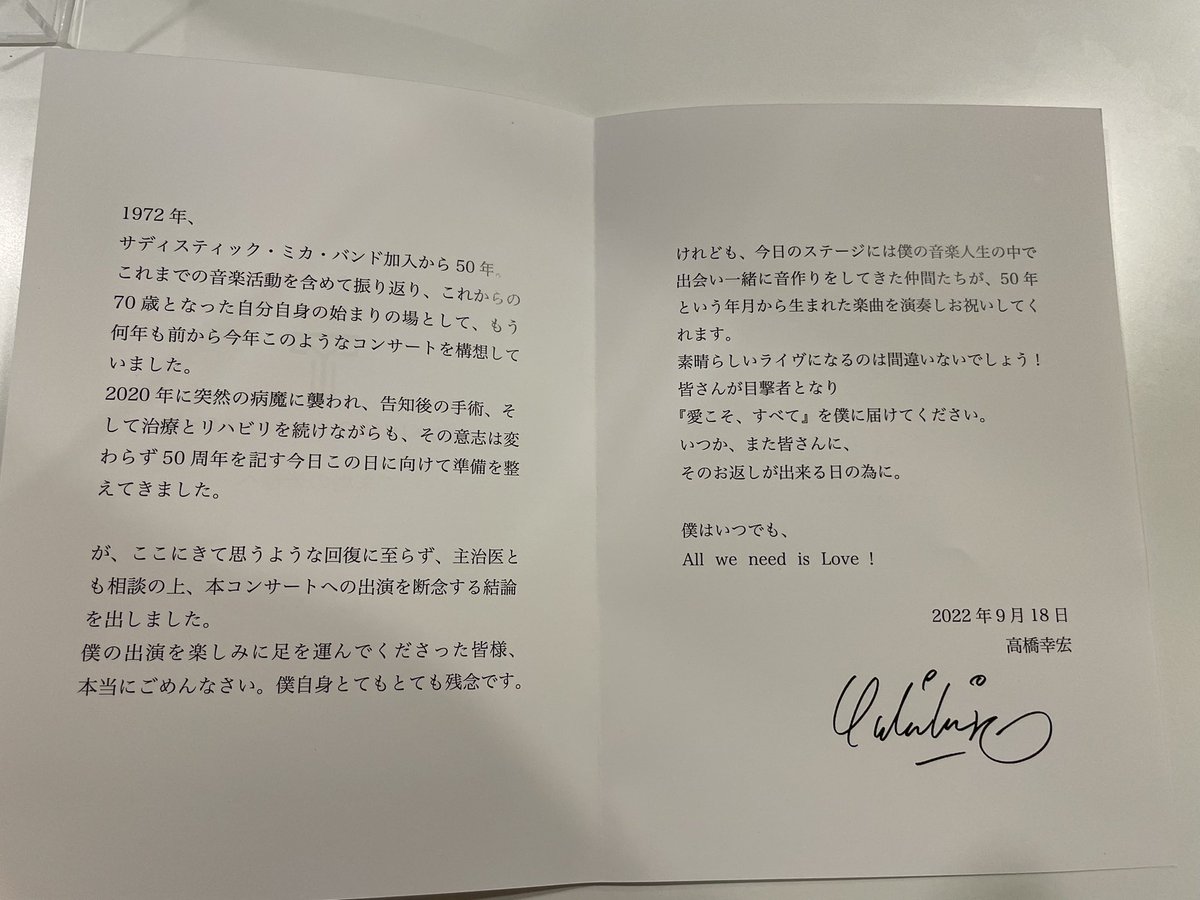 1972 年、
サディスティック・ミカ・バンド加入から 50 年。
これまでの音楽活動を含めて振り返り、これからの
70 歳となった自分自身の始まりの場として、もう
何年も前から今年このようなコンサートを構想して
いました。
2020 年に突然の病魔に襲われ、告知後の手術、そ
して治療とリハビリを続けながらも、その意志は変
わらず 50 周年を記す今日この日に向けて準備を整
えてきました。
が、ここにきて思うような回復に至らず、主治医と
も相談の上、本コンサートへの出演を断念する結論
を出しました。
僕の出演を楽しみに足を運んでくださった皆様、
本当にごめんなさい。僕自身とてもとても残念です。
けれども、今日のステージには僕の音楽人生の中で
出会い一緒に音作りをしてきた仲間たちが、50 年
という年月から生まれた楽曲を演奏しお祝いしてく
れます。
素晴らしいライヴになるのは間違いないでしょう!
皆さんが目撃者となり
『愛こそ、すべて』を僕に届けてください。
いつか、また皆さんに、
そのお返しが出来る日の為に。
僕はいつでも、
All we need is Love !
2022 年 9 月 18 日
高橋幸宏